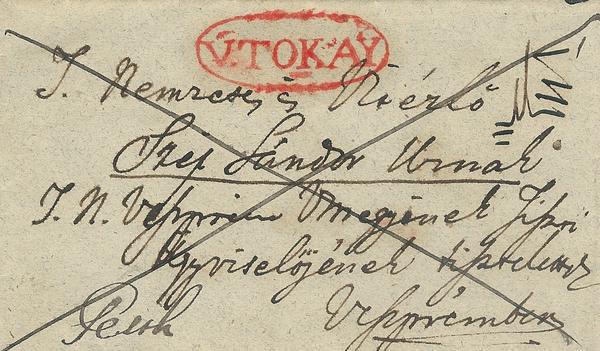 V. TOKAY
T. Nemzetes és Vitézlő
Szép Sándor Urnak
T. N. Veszprém Vmegyének
Ügyviselőjének tisztelettel
Pesth Veszprémben